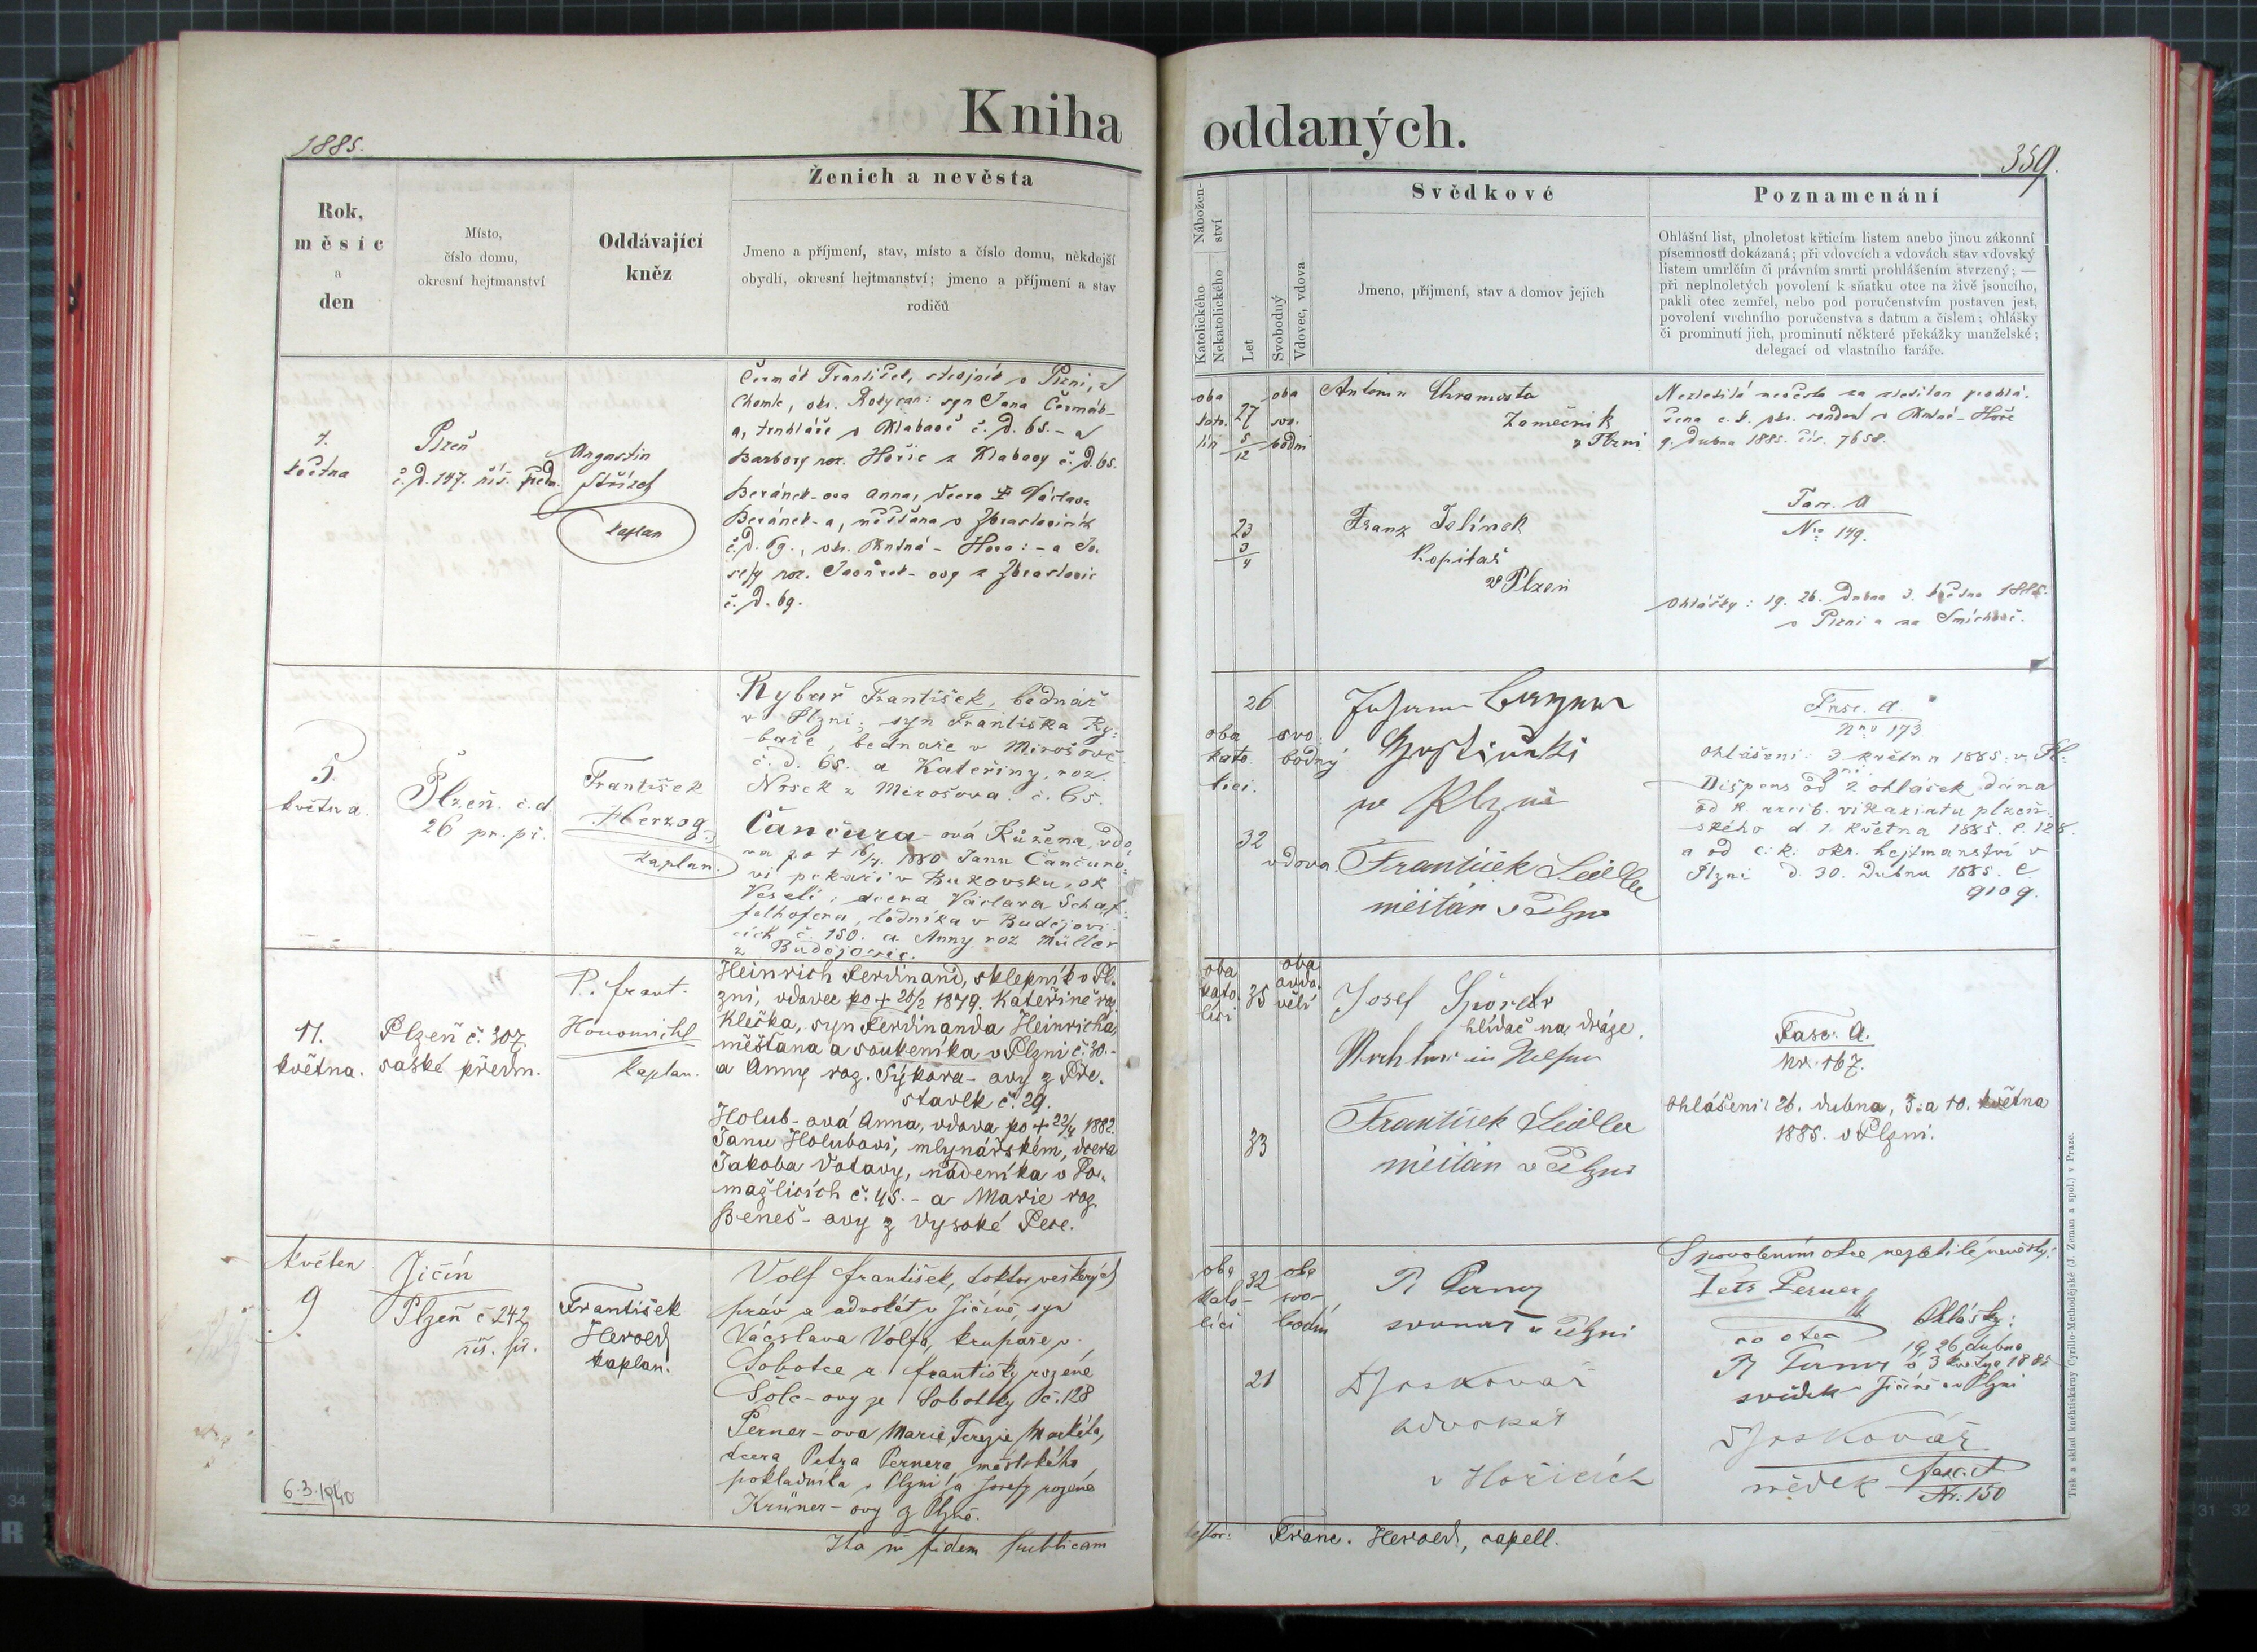 1885.
Kniha
oddaných.
359.
Rok,
měsíc
a
den
Místo,
číslo domu,
okresní hejtmanství
Oddávající
kněz
Ženich a nevěsta
Jmeno a příjmení, stav, místo a číslo domu, někdejší
obydlí, okresní hejtmanství; jmeno a příjmení a stav
rodičů
Nábožen-
ství
Katolického
Nekatolického
Let
Svobodný
Vdovec, vdova
Svědkové
Jmeno, příjmení, stav a domov jejich
Poznamenání
Ohlášní list, plnoletost křticím listem anebo jinou zákonní
písemností dokázaná; při vdovcích a vdovách stav vdovský
listem umrlčím či právním smrti prohlášením stvrzený; —
při neplnoletých povolení k sňatku otce na živě jsoucího,
pakli otec zemřel, nebo pod poručenstvím postaven jest,
povolení vrchního poručenstva s datum a číslem; ohlášky
či prominutí jich, prominutí některé překážky manželské;
delegací od vlastního faráře.
května
Plzeň
č. d. 147. říš. před.
Augustin
Střízek
kaplan
Čermák František, strojník v Plzni, z
Chomle, okr. Rokycan: syn Jana Čermák-
a, truhláře v Klabavě č. d. 65. - a
Barbory roz. Hořic z Klabavy č. d. 65.
Beránek-ova Anna, dcera Václava
Beránek-a, měšťana v Zbraslavicích
č. d. 69., okr. Kutná-Hora: - a Jo-
sefy roz. z Zbraslavic
č. d. 69.
oba
kato.
líci
27
5/12
oba
svo.
bodni
23
3/4
Antonín Chramosta
Zamečník
v Plzni
Franz Jelínek
Kopitař
v Plzen
Nezletilá nevěsta za zletilou prohlá-
šena c. k. okr. soudem v Kutné-Hoře
9. dubna 1885. čís. 7658.
Fasc. A
Nro 149.
Ohlášky: 19. 26. dubna 3. května 1885.
v Plzni a na Smíchově.
5.
května.
Plzeň. č. d.
26 pr. př.
František
Herzog
kaplan.
Rybař František, bednář
v Plzni; syn Františka Ry-
baře, bednaře v Mirošově
č. d. 65. a Kateřiny, roz.
Nosek z Mirošova. č. 65.
Čančura-ová Růžena, vdo-
va po + 1880 Janu Čančuro-
vi pekaři v Bukovsku, ok
Veselí; dcera Václava Schaf-
felhofera, lodníka v Budějovi-
cích č. 150. a Anny roz. Müller
z Budějovic.
26
oba
kato
lici.
svo-
bodný
32
vdova
Johann
v Plzni
František Seidler
měštan v Plzni
Fasc. A.
Nro 173
Ohlášeni: 3 května 1885. v Pl-
zni.
Dispens od 2 ohlášek dána
od k. arcib. vikariatu plzeň-
ského d. 1. května 1885. č. 128.
a od c. k. okr. hejtmanství v
Plzni d. 30. Dubna 1885. č.
9109.
11.
května.
Plzeň č. 307.
saské předm.
P. Frant.
Houomichl
kaplan.
Heinrich Ferdinand, sklepník v Pl-
zni, vdovec po + 1879. Kateřině roz.
Klečka, syn Ferdinanda Heinricha
měšťana a soukeníka v Plzni č. 30. -
a Anny roz. Sýkora-ovy z Pře-
stavlk č. 29.
Holub-ová Anna, vdova po + 22/4 1882.
Janu Holubovi, mlynářském, dcera
Jakoba Votavy, nádeníka v Do-
mažlicích č. 45. - a Marie roz.
Beneš-ovy z Vysoké Pece.
oba
kato-
líci
35
oba
ovdo-
vělí
33
Josef
hlídač na dráze.
František Seidler
měštan v Plzni
Fasc: A.
Nr. 167.
Ohlášeni: 26. dubna, 3. a 10. května
1885. v Plzni.
Květen
9
6.3.1940
Jičín
Plzeň č 242
říš. př.
František
Herold
kaplan.
Volf František, doktor veškerých
práv a advokát v Jičíně, syn
Václava Volfa, krupaře v
Sobotce a Františky rozené
Šolc-ovy ze Sobotky č. 128
Perner-ova Marie Terezie Markéta,
dcera Petra Pernera městského
pokladníka v Plzni a Josefy rozené
Krüner-ovy z Plzně.
oba
kato-
líci
32
oba
svo-
bodní
21
v Plzni
advokat
v Hořicích
S povolením otce nezletilé nevěsty:
Petr Perner
co otec
Ohlášky:
19, 26 dubna
a 3 května 1885
svědek
v Jičíně a v Plzni
svědek
Fasc. A
Nr: 150
Ita in fidem publicam
testor: Franc. Herold, capell.
Tisk a sklad kněhtiskárny Cyrillo-Methodějské (J. Zeman a spol.) v Praze.